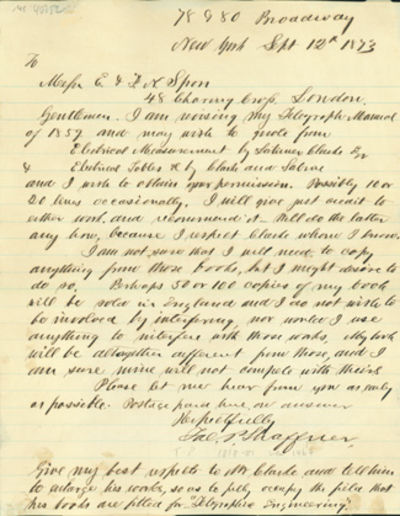 78 & 80 Broadway
New York Sept 12th 1873
To
Messrs E. & F. N Spon
48 Charing Cross, London.
Gentlemen. I am revising my Telegraph Manual
of 1859 and may wish to quote from
Electrical Measurement by Latimer Clarke Esq
& Electrical Tables &c by Clarke and Sabine
and I wish to obtain your permission. Possibly 10 or
20 lines occasionally. I will give just credit to
either work, and recommend it. Will do the latter
any how, because I respect Clarke whom I know.
I am not sure that I will need to copy
anything from those books, but I might desire to
do so. Perhaps 50 or 100 copies of my book
will be sold in England and I do not wish to
be involved by interfering, nor would I use
anything to interfere with those works. My book
will be altogether different from those, and I
am sure mine will not compete with theirs
Please let me hear from you as early
as possible. Postage paid here on answer
Respectfully
Tal. P. Shaffner
Give my best respects to Mr Clarke and tell him
to enlarge his works, so as to fully occupy the field that
his books are fitted for "Telegraphic Engineering".